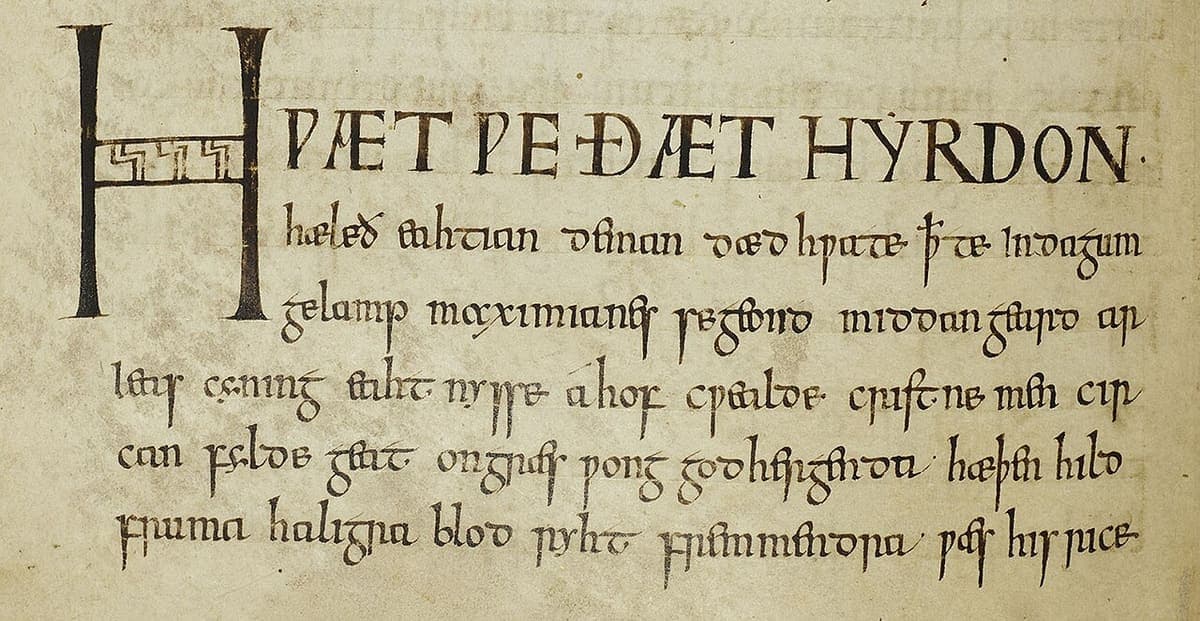 HǷÆT ǷE ÐÆT HẎRDON·
hæleð eahtian deman dædhƿate ꝥte Indagum
gelamp maximianes se geond middangeard ar
leas cyning eaht nysse áhof cƿealde cristne men cir
can fylde geat ongræs ƿong godhergendra· hæþen hild
fruma haligra blod ryht fremmendra ƿæs his rice